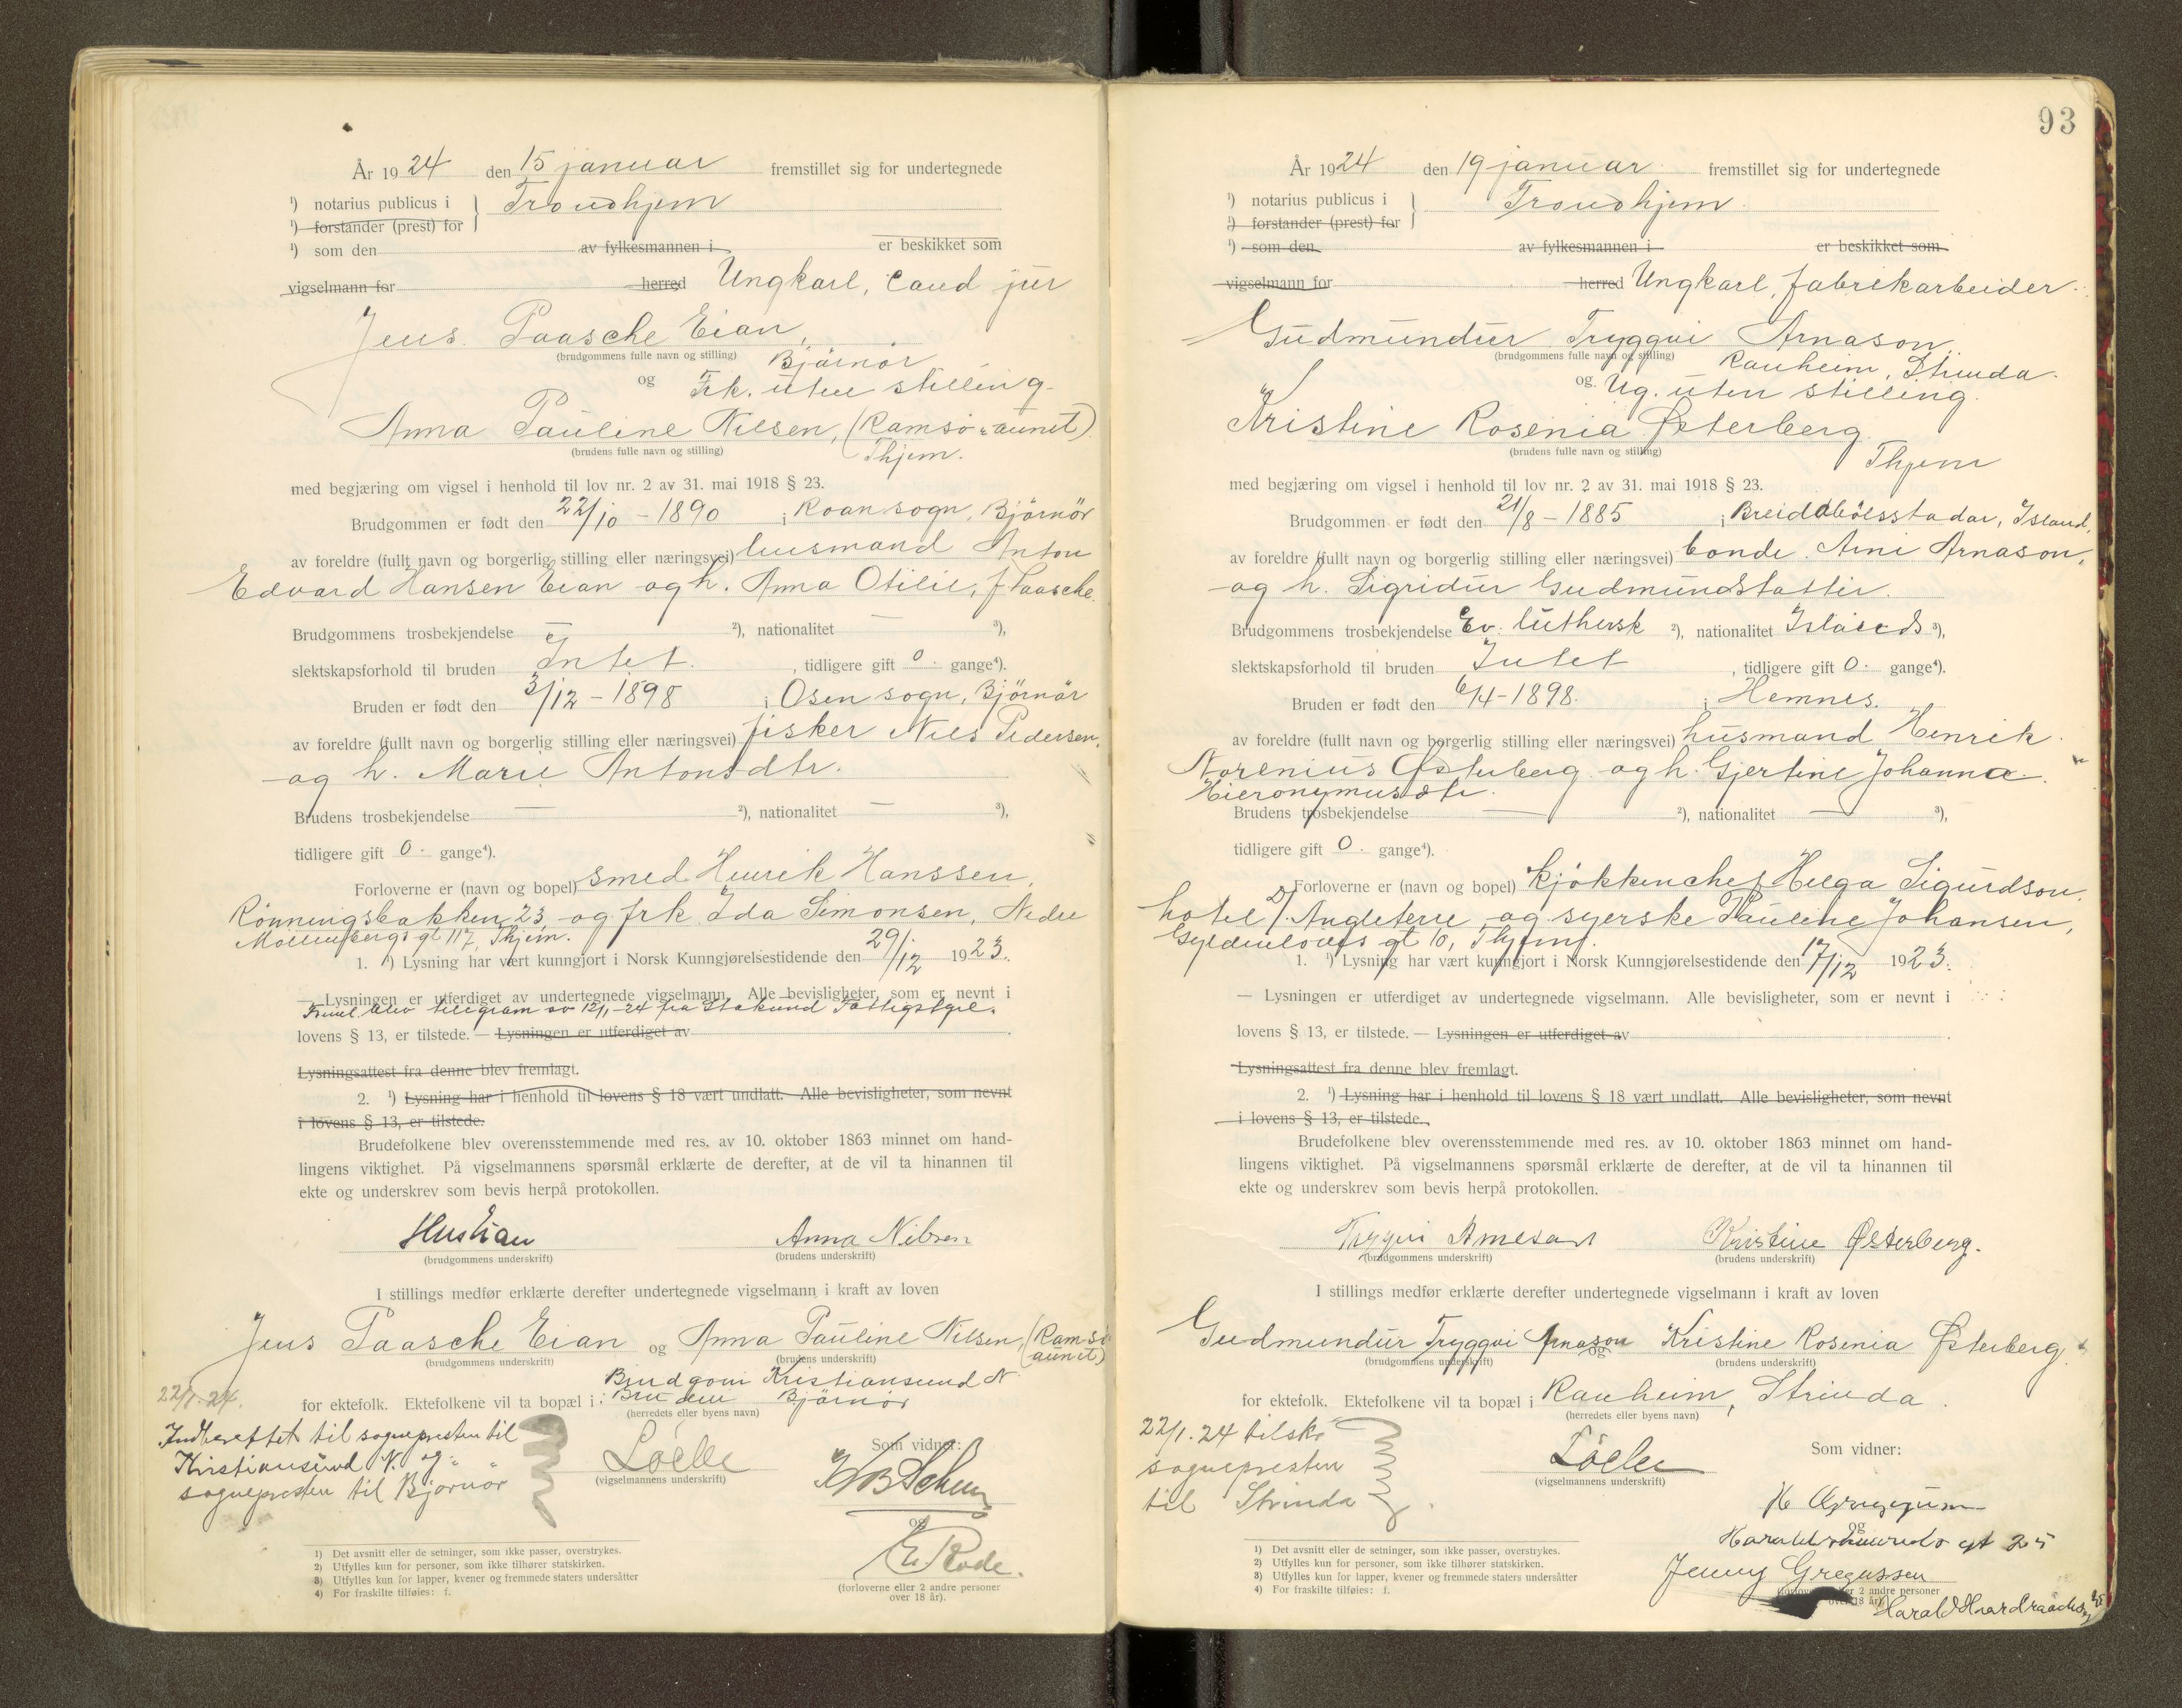 År 1924 den 15 januar fremstillet sig for undertegnede
¹) notarius publicus i } Trondhjem
¹) forstander (prest) for
¹) som den av fylkesmannen i er beskikket som
vigselmann for herred Ungkarl, cand jur
Jens Paasche Eian,
(brudgommens fulle navn og stilling) Bjørnør
og Frk. uten stilling
Anna Pauline Nilsen, (Ramsøaunet)
(brudens fulle navn og stilling) Thjem.
med begjæring om vigsel i henhold til lov nr. 2 av 31. mai 1918 § 23.
Brudgommen er født den 22/10 - 1890 i Roan sogn, Bjørnør
av foreldre (fullt navn og borgerlig stilling eller næringsvei) husmand Anton
Edvard Hansen Eian og h. Anna Otilie, f Paasche.
Brudgommens trosbekjendelse — ²), nationalitet — ³),
slektskapsforhold til bruden Intet. , tidligere gift 0. gange⁴).
Bruden er født den 3/12 - 1898 i Osen sogn, Bjørnør
av foreldre (fullt navn og borgerlig stilling eller næringsvei) fisker Nils Pedersen,
og h. Marie Antonsdtr.
Brudens trosbekjendelse — ²), nationalitet — ³),
tidligere gift 0. gange⁴).
Forloverne er (navn og bopel) smed Henrik Hanssen,
Rønningsbakken 23 og frk Ida Simonsen, Nedre
Møllenbergs gt 117, Thjem.
1. ¹) Lysning har vært kunngjort i Norsk Kunngjørelsestidende den 29/12 1923.
— Lysningen er utferdiget av undertegnede vigselmann. Alle bevisligheter, som er nevnt i
blev telegram av 12/1-24 fra
lovens § 13, er tilstede. — Lysningen er utferdiget av
Lysningsattest fra denne blev fremlagt.
2. ¹) Lysning har i henhold til lovens § 18 vært undlatt. Alle bevisligheter, som nevnt
i lovens § 13, er tilstede.
Brudefolkene blev overensstemmende med res. av 10. oktober 1863 minnet om hand-
lingens viktighet. På vigselmannens spørsmål erklærte de derefter, at de vil ta hinannen til
ekte og underskrev som bevis herpå protokollen.
Anna Nilsen
(brudgommens underskrift) (brudens underskrift)
I stillings medfør erklærte derefter undertegnede vigselmann i kraft av loven
Jens Paasche Eian og Anna Pauline Nilsen, (Ramsø-
aunet)
(brudgommens underskrift) (brudens underskrift)
Brudgom Kristiansund N
22/1.24. for ektefolk. Ektefolkene vil ta bopæl i: Bruden Bjørnør
(herredets eller byens navn)
Indberettet til sognepresten til
Kristiansund N. og
sognepresten til Bjørnør
Som vidner:
(vigselmannens underskrift)
og
E. Rode.
(forloverne eller 2 andre personer
over 18 år).
1) Det avsnitt eller de setninger, som ikke passer, overstrykes.
2) Utfylles kun for personer, som ikke tilhører statskirken.
3) Utfylles kun for lapper, kvener og fremmede staters undersåtter
4) For fraskilte tilføies: f.
93
År 1924 den 19 januar fremstillet sig for undertegnede
¹) notarius publicus i } Trondhjem
¹) forstander (prest) for
¹) som den av fylkesmannen i er beskikket som
vigselmann for herred Ungkarl, fabrikarbeider.
Gudmundur Tryggvi Arnason,
(brudgommens fulle navn og stilling) Ranheim, Strinda.
og Ug. uten stilling.
Kristine Rosenia Østerberg
(brudens fulle navn og stilling) Thjem
med begjæring om vigsel i henhold til lov nr. 2 av 31. mai 1918 § 23.
Brudgommen er født den 21/8 - 1885 i Breidabólsstadar, Island,
av foreldre (fullt navn og borgerlig stilling eller næringsvei) bonde Arni Arnason,
og h. Sigridur Gudmundstattir.
Brudgommens trosbekjendelse Ev. luthersk ²), nationalitet Islands ³),
slektskapsforhold til bruden Intet , tidligere gift 0. gange⁴).
Bruden er født den 6/4-1898. i Hemnes.
av foreldre (fullt navn og borgerlig stilling eller næringsvei) husmand Henrik
Norenius Østerberg og h. Gjertine Johanna
Hieronymusdtr.
Brudens trosbekjendelse — ²), nationalitet — ³),
tidligere gift 0. gange⁴).
Forloverne er (navn og bopel) kjøkkenchef Helga Sigurdson,
hotel D'Angleterre og syerske Pauline Johansen,
Gyldenløves gt 10, Thjem.
1. ¹) Lysning har vært kunngjort i Norsk Kunngjørelsestidende den 17/12 1923.
— Lysningen er utferdiget av undertegnede vigselmann. Alle bevisligheter, som er nevnt i
lovens § 13, er tilstede. — Lysningen er utferdiget av
Lysningsattest fra denne blev fremlagt.
2. ¹) Lysning har i henhold til lovens § 18 vært undlatt. Alle bevisligheter, som nevnt
i lovens § 13, er tilstede.
Brudefolkene blev overensstemmende med res. av 10. oktober 1863 minnet om hand-
lingens viktighet. På vigselmannens spørsmål erklærte de derefter, at de vil ta hinannen til
ekte og underskrev som bevis herpå protokollen.
Tryggvi Arnason Kristine Østerberg.
(brudgommens underskrift) (brudens underskrift)
I stillings medfør erklærte derefter undertegnede vigselmann i kraft av loven
Gudmundur Tryggvi Arnason og Kristine Rosenia Østerberg
(brudgommens underskrift) (brudens underskrift)
for ektefolk. Ektefolkene vil ta bopæl i Ranheim, Strinda.
(herredets eller byens navn)
22/1.24 tilskr
sognepresten
til Strinda
Som vidner:
(vigselmannens underskrift)
og
gt 25
Jenny Gregussen
(forloverne eller 2 andre personer
over 18 år).
1) Det avsnitt eller de setninger, som ikke passer, overstrykes.
2) Utfylles kun for personer, som ikke tilhører statskirken.
3) Utfylles kun for lapper, kvener og fremmede staters undersåtter
4) For fraskilte tilføies: f.